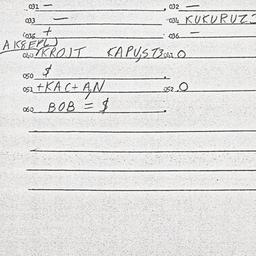 031 — 032 —
033 — 034 KUKURUZ
035 + 036 —
AKSEPL)
040 KROJT KAPUST3 042 O
050 $
051 +KAC+A,N 052 O
060 BOB = $